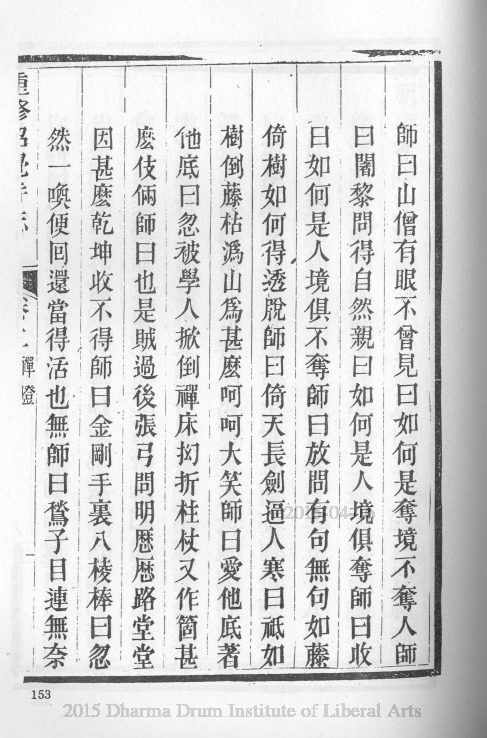 師曰山僧有眼不曾見曰如何是奪境不奪人師
曰闍黎問得自然親曰如何是人境俱奪師曰收
曰如何是人境俱不奪師曰放問有句無句如藤
倚樹如何得透脫師曰倚天長劍逼人寒曰祗如
樹倒藤枯溈山爲甚麼呵呵大笑師曰愛他底著
他底曰忽被學人掀倒禪床拗折柱杖又作箇甚
麽伎倆師曰也是賊過後張弓問明厯厯路堂堂
因甚麽乾坤收不得師曰金剛手裏八棱棒曰忽
然一喚便囘還當得活也無師曰鶖子目連無奈
禪燈
153
2015 Dharma Drum Institute of Liberal Arts